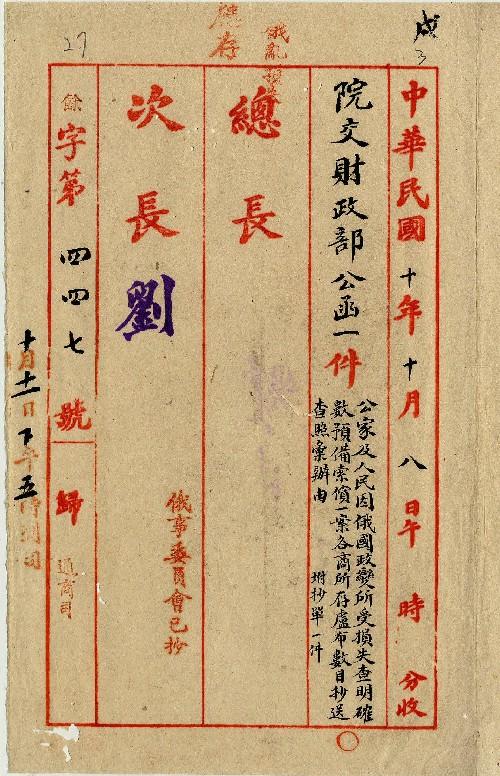 戌
3
中華民國十年十月八日午　時　分收
院交財政部公函一件
公家及人民因俄國政變所受損失查明確
數預備索償一案各商所存盧布數目抄送
查照彙辦由　附抄單一件
俄亂損失
應存
總長
次長劉
俄事委員會已抄
餘字第四四七號歸通商司
27
十月十一日下午五時到司